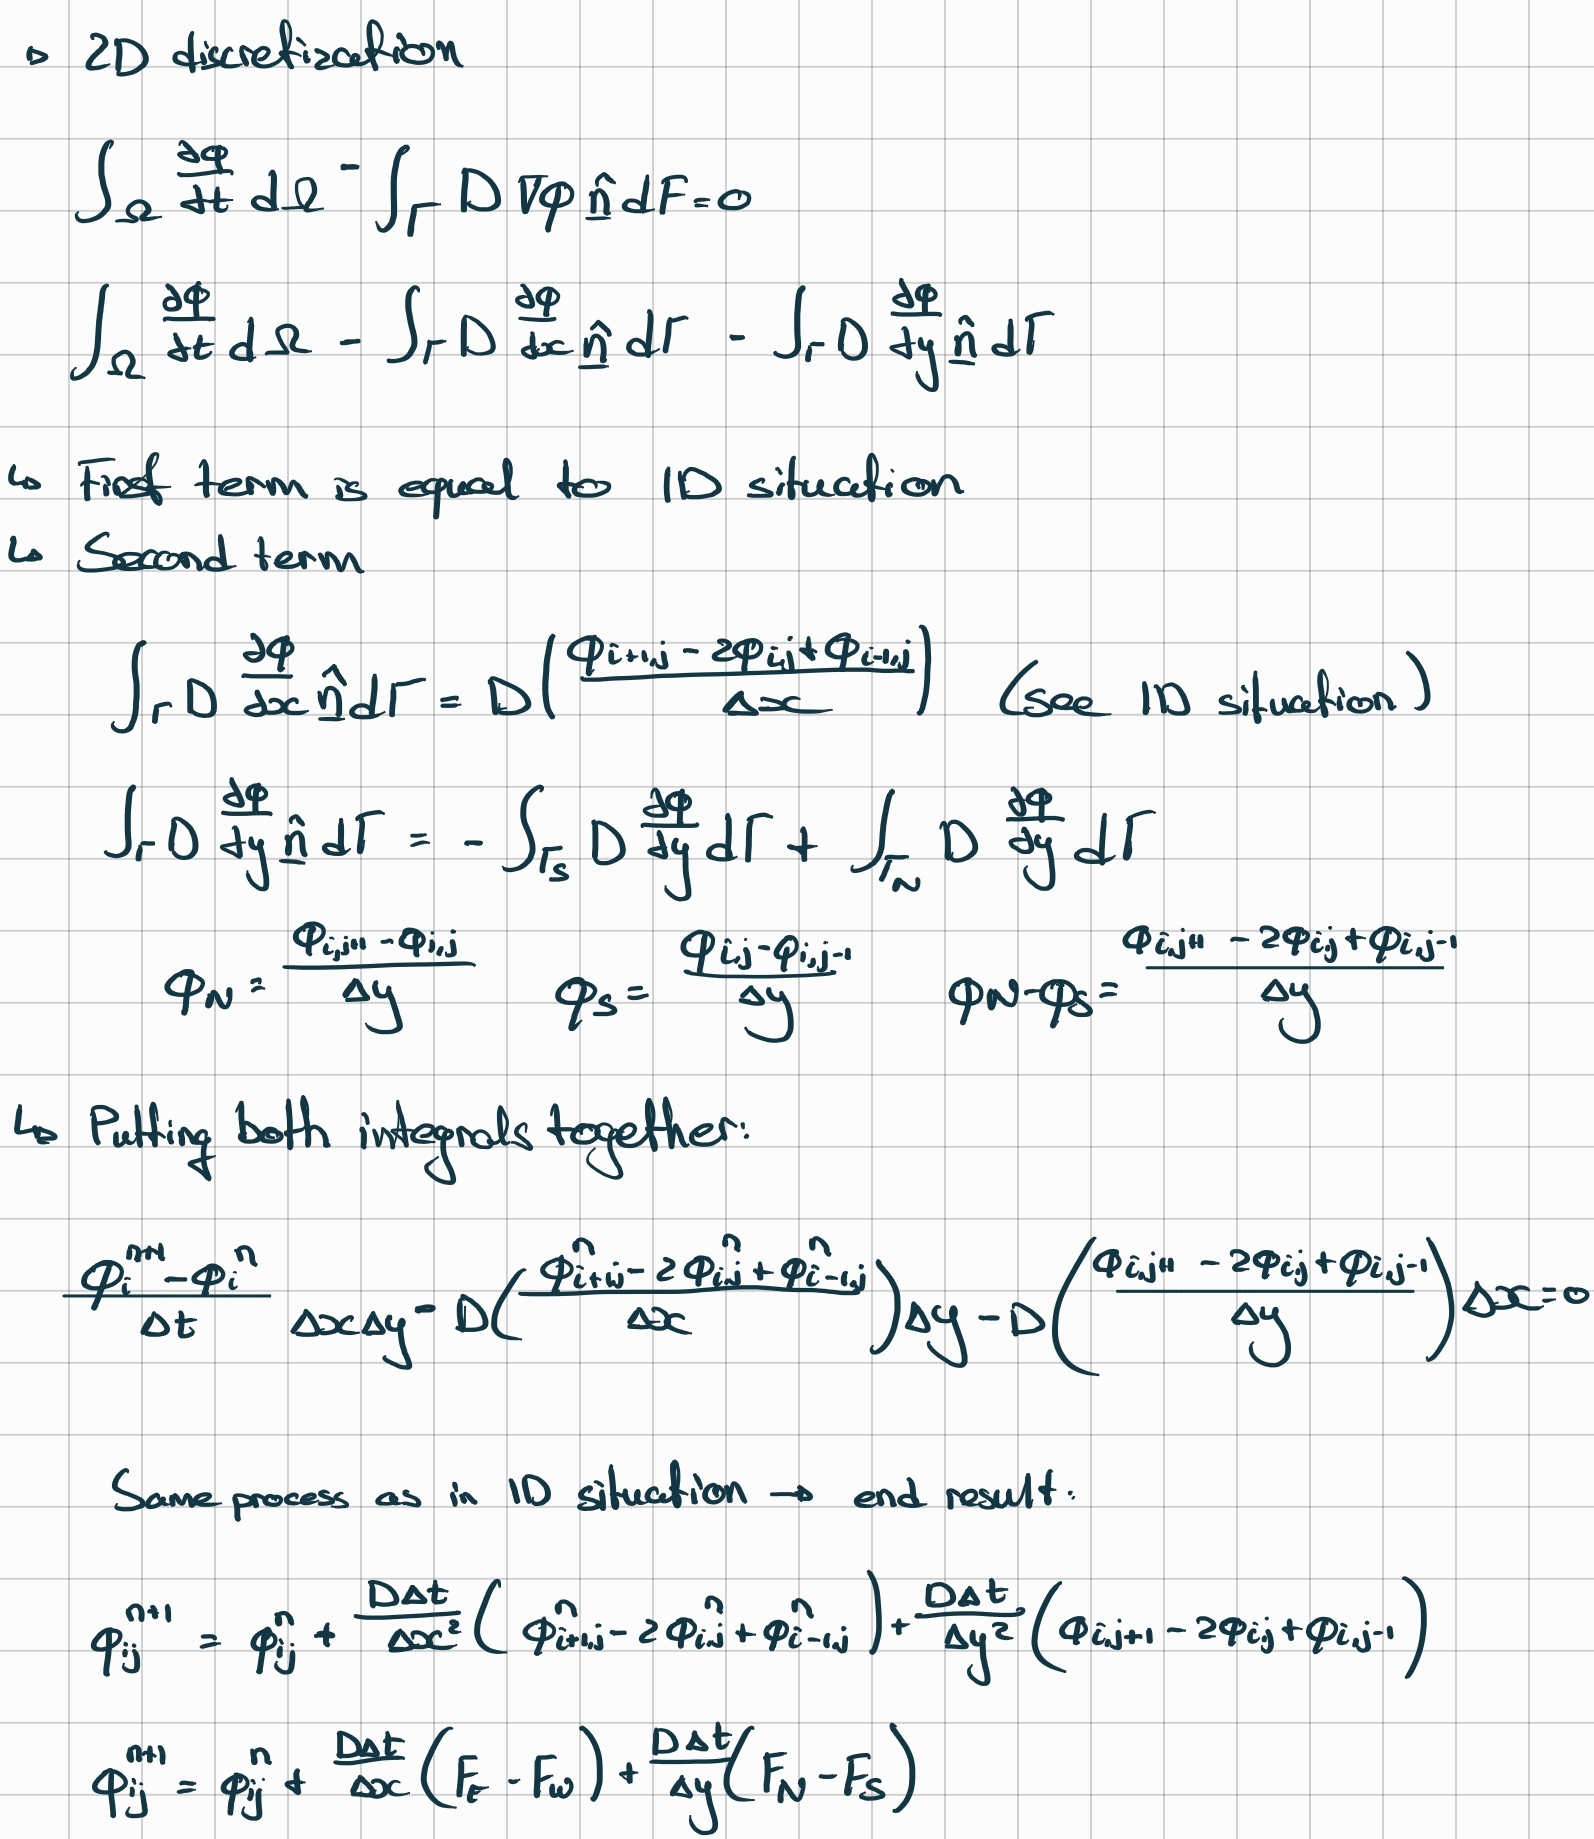 ▹ 2D discretization
∫_Ω ∂φ/∂t dΩ - ∫_Γ D ∇φ n̂ dΓ = 0
∫_Ω ∂φ/∂t dΩ - ∫_Γ D ∂φ/∂x n̂ dΓ - ∫_Γ D ∂φ/∂y n̂ dΓ
↳ First term is equal to 1D situation
↳ Second term
∫_Γ D ∂φ/∂x n̂ dΓ = D((φ_{i+1,j} - 2φ_{i,j} + φ_{i-1,j})/Δx) (see 1D situation)
∫_Γ D ∂φ/∂y n̂ dΓ = - ∫_{Γ_S} D ∂φ/∂y dΓ + ∫_{Γ_N} D ∂φ/∂y dΓ
φ_N = (φ_{i,j+1} - φ_{i,j})/Δy φ_S = (φ_{i,j} - φ_{i,j-1})/Δy φ_N - φ_S = (φ_{i,j+1} - 2φ_{i,j} + φ_{i,j-1})/Δy
↳ Putting both integrals together:
(φ_i^{n+1} - φ_i^n)/Δt ΔxΔy - D((φ^n_{i+1,j} - 2φ^n_{i,j} + φ^n_{i-1,j})/Δx)Δy - D((φ_{i,j+1} - 2φ_{i,j} + φ_{i,j-1})/Δy)Δx = 0
Same process as in 1D situation → end result:
φ_{ij}^{n+1} = φ_{ij}^n + DΔt/Δx² (φ^n_{i+1,j} - 2φ^n_{i,j} + φ^n_{i-1,j}) + DΔt/Δy² (φ_{i,j+1} - 2φ_{i,j} + φ_{i,j-1})
φ_{ij}^{n+1} = φ_{ij}^n + DΔt/Δx (F_E - F_W) + DΔt/Δy (F_N - F_S)